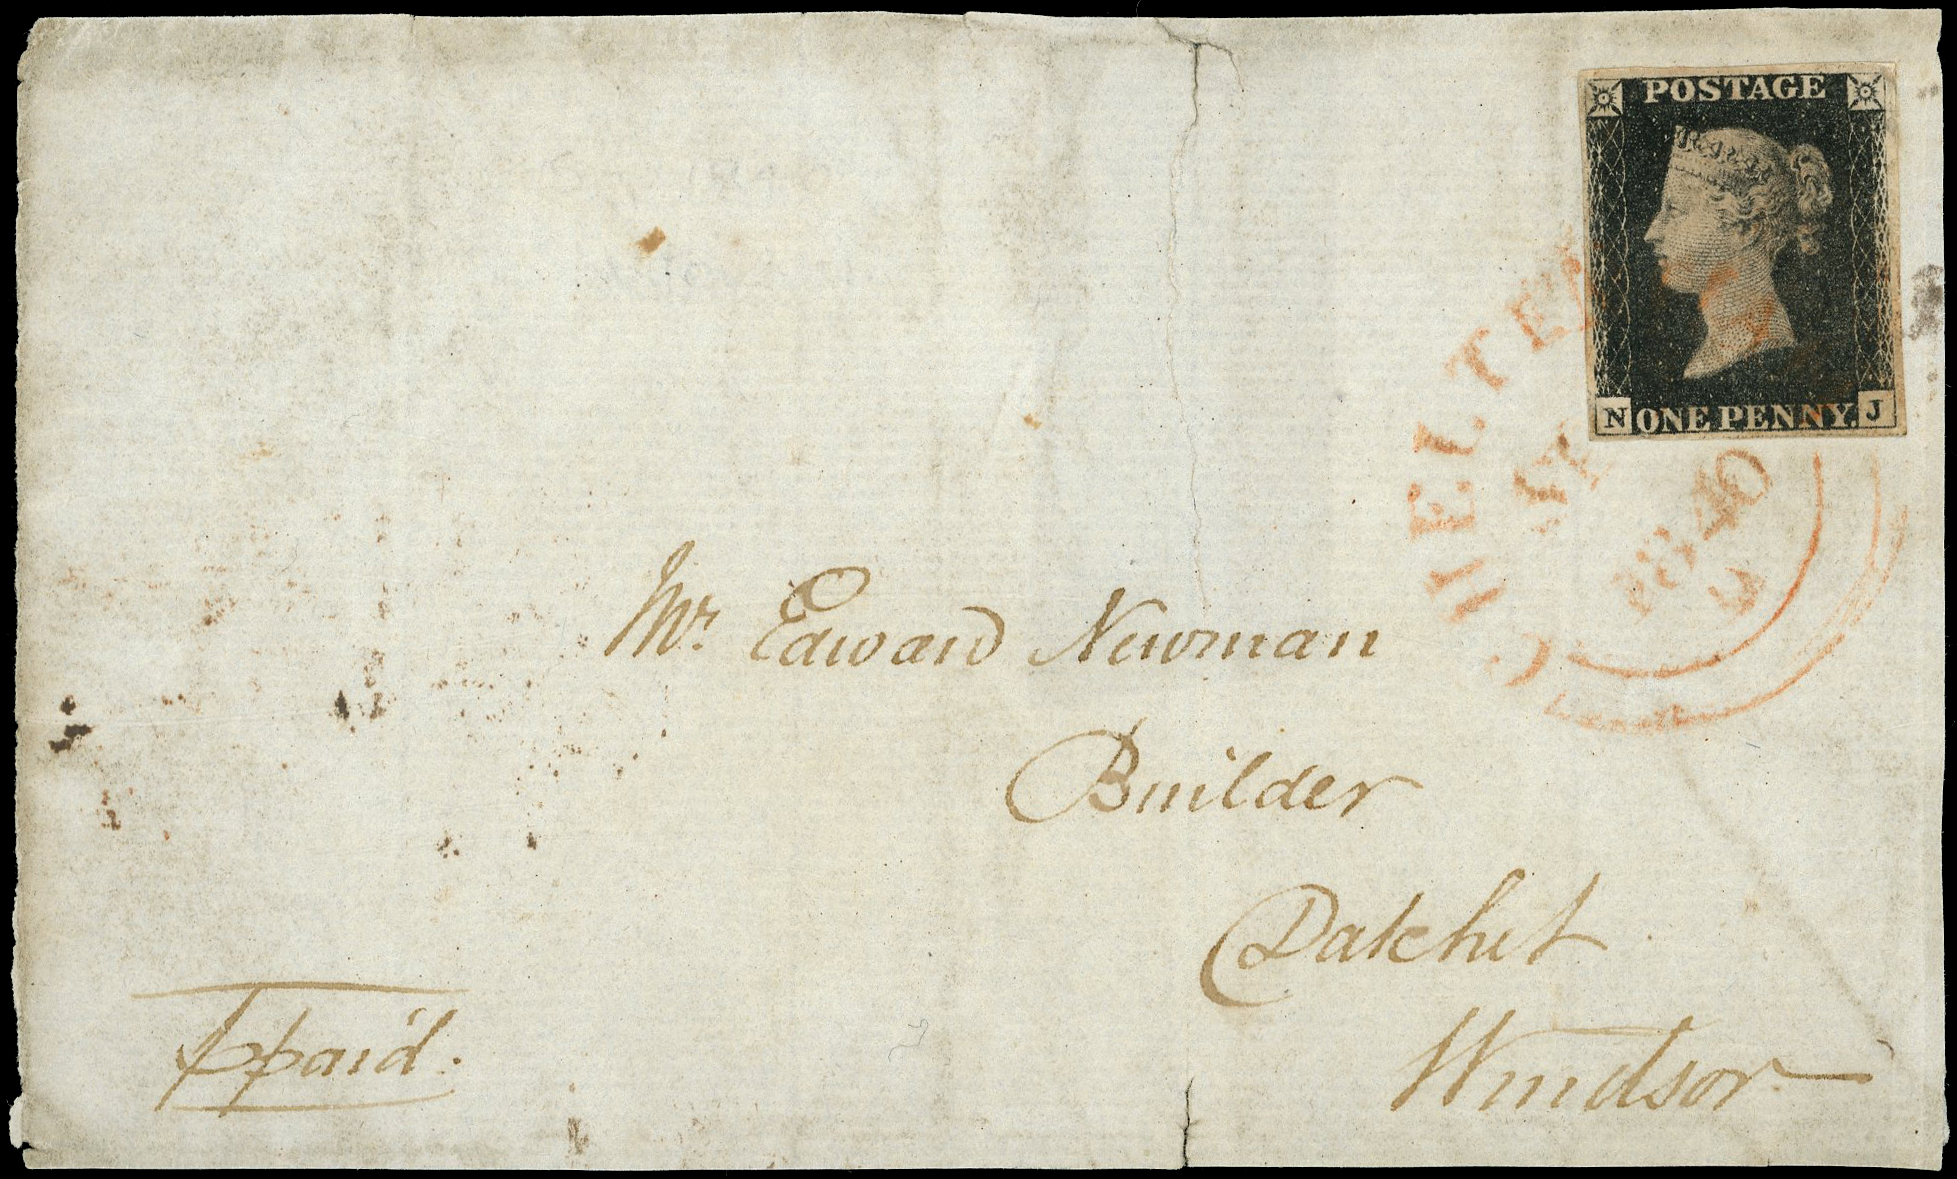 POSTAGE
N ONE PENNY. J
CHELTEN
1840
Mr. Edward Newman
Builder
Datchet
Windsor
ppaid.